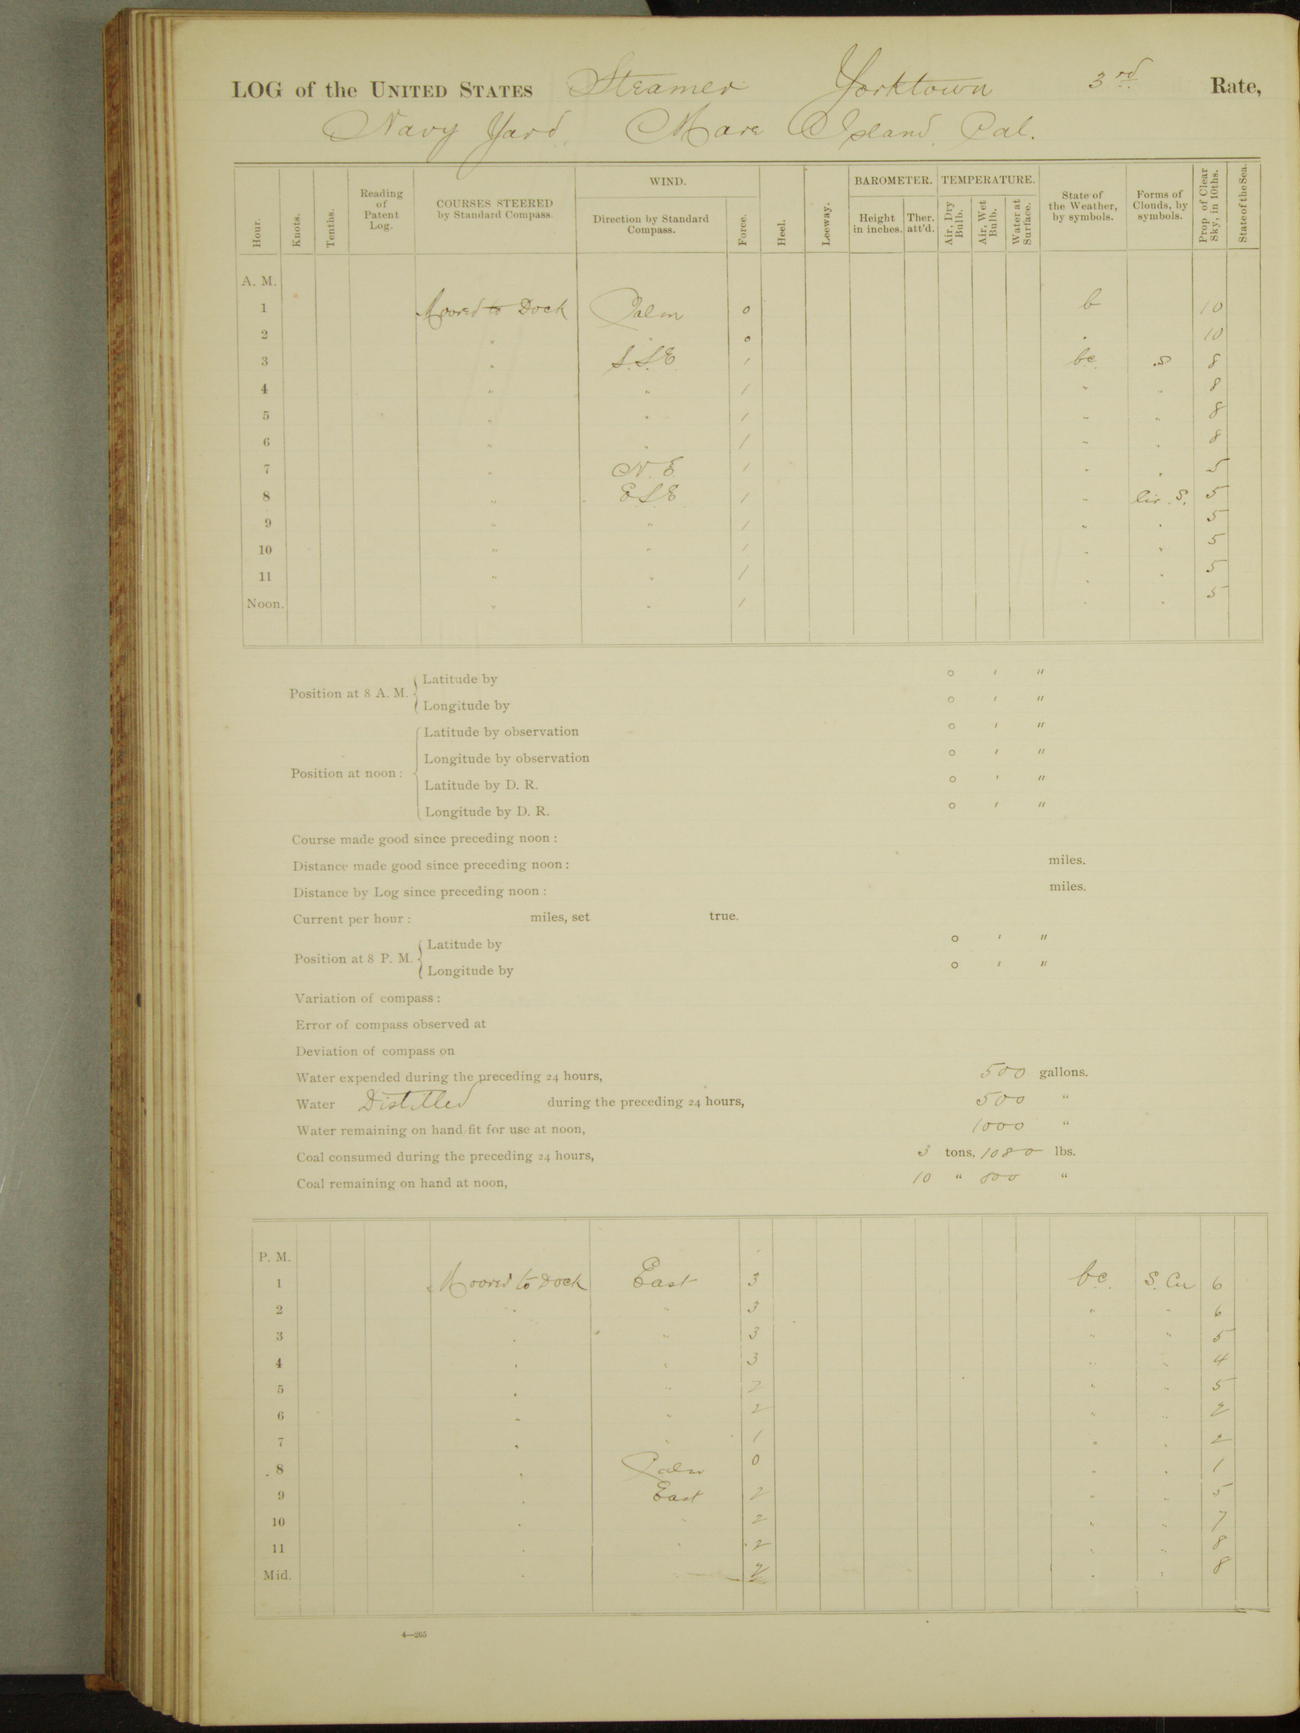 LOG of the UNITED STATES Steamer Yorktown 3rd Rate,
Navy Yard, Mare Island, Cal.
Hour. Knots. Tenths. Reading of Patent Log. COURSES STEERED by Standard Compass. WIND. Direction by Standard Compass. Force. Heel. Leeway. BAROMETER. Height in inches. Ther. att'd. TEMPERATURE. Air, Dry Bulb. Air, Wet Bulb. Water at Surface. State of the Weather, by symbols. Forms of Clouds, by symbols. Prop. of Clear Sky, in 10ths. State of the Sea.
A. M.
1 Moored to Dock Calm 0 b 10
2 " " 0 " 10
3 " S.S.E. 1 bc. S 8
4 " " 1 " " 8
5 " " 1 " " 8
6 " " 1 " " 8
7 " N.E. 1 " " 5
8 " E.S.E. 1 " Cir. S. 5
9 " " 1 " " 5
10 " " 1 " " 5
11 " " 1 " " 5
Noon. " " 1 " " 5
Position at 8 A. M. { Latitude by ° ′ ″
Longitude by ° ′ ″
Position at noon : { Latitude by observation ° ′ ″
Longitude by observation ° ′ ″
Latitude by D. R. ° ′ ″
Longitude by D. R. ° ′ ″
Course made good since preceding noon :
Distance made good since preceding noon : miles.
Distance by Log since preceding noon : miles.
Current per hour : miles, set true.
Position at 8 P. M. { Latitude by ° ′ ″
Longitude by ° ′ ″
Variation of compass :
Error of compass observed at
Deviation of compass on
Water expended during the preceding 24 hours, 500 gallons.
Water Distilled during the preceding 24 hours, 500 "
Water remaining on hand fit for use at noon, 1000 "
Coal consumed during the preceding 24 hours, 3 tons, 1080 lbs.
Coal remaining on hand at noon, 10 " 800 "
P. M.
1 Moored to Dock East 3 bc. S. Cu 6
2 " " 3 " " 6
3 " " 3 " " 5
4 " " 3 " " 4
5 " " 2 " " 5
6 " " 2 " " 2
7 " " 1 " " 2
8 " Calm 0 " " 1
9 " East 2 " " 5
10 " " 2 " " 7
11 " " 2 " " 8
Mid. " " 2 " " 8
4—265